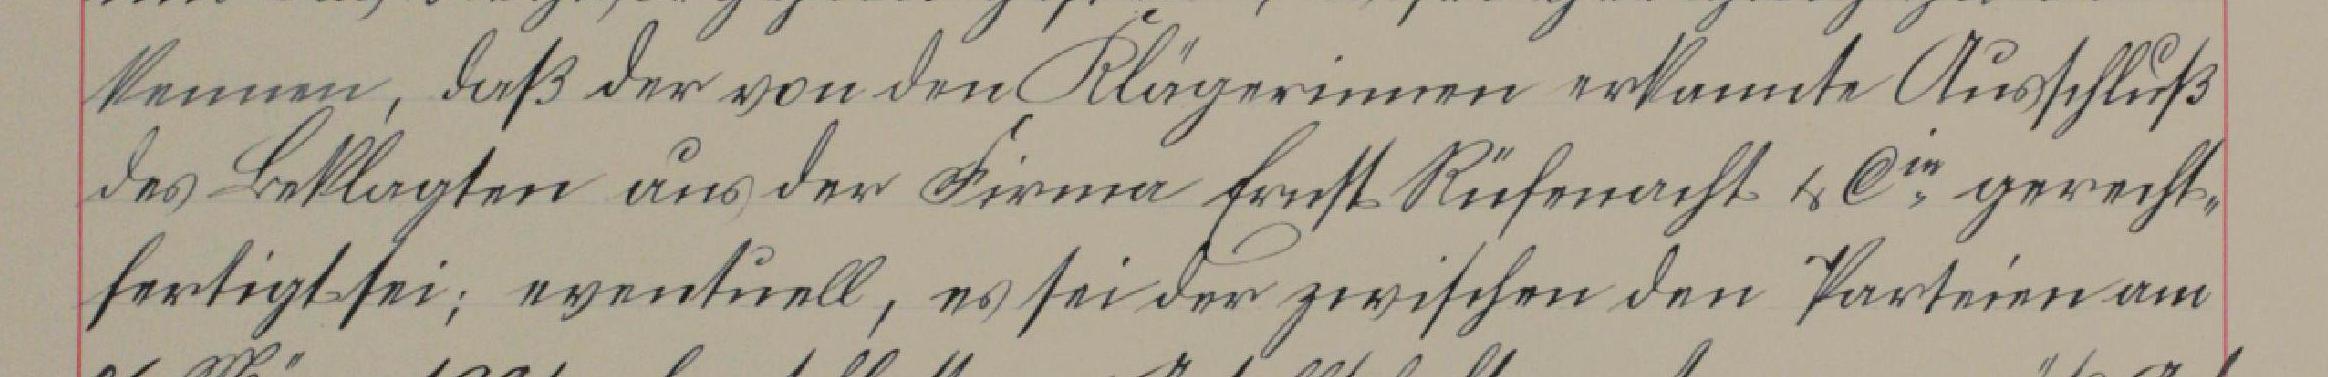 kennen, daß der von den Klägerinnen erkannte Ausschluß
des Beklagten aus der Firma Ernst Rüfenacht & Cie. gerecht-
fertigt sei; eventuell, es sei der zwischen den Parteien am